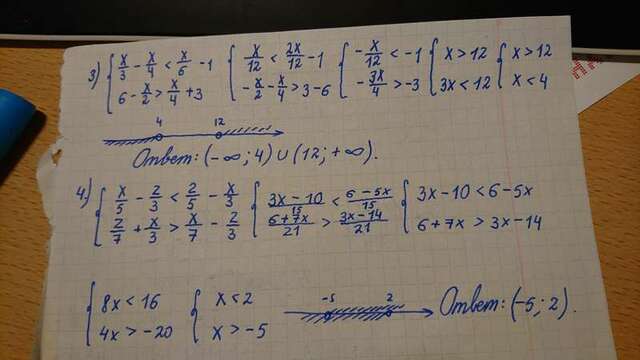 3) { x/3 - x/4 < x/6 - 1 ; 6 - x/2 > x/4 + 3 { x/12 < 2x/12 - 1 ; -x/2 - x/4 > 3 - 6 { -x/12 < -1 ; -3x/4 > -3 { x > 12 ; 3x < 12 { x > 12 ; x < 4
4 12
Ответ: (-∞; 4) ∪ (12; +∞).
4) { x/5 - 2/3 < 2/5 - x/3 ; 2/7 + x/3 > x/7 - 2/3 { (3x - 10)/15 < (6 - 5x)/15 ; (6 + 7x)/21 > (3x - 14)/21 { 3x - 10 < 6 - 5x ; 6 + 7x > 3x - 14
{ 8x < 16 ; 4x > -20 { x < 2 ; x > -5 -5 2 Ответ: (-5; 2).